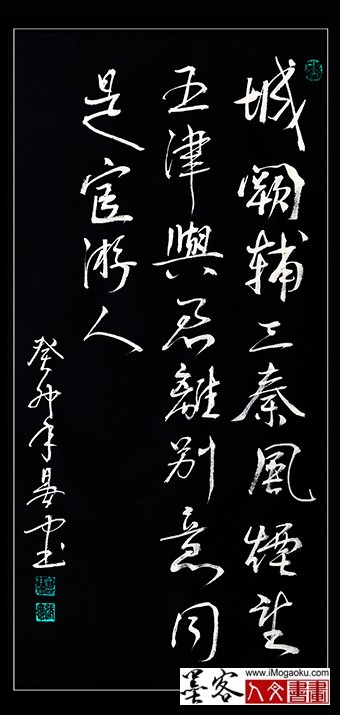 城闕輔三秦風煙望
五津與君離別意同
是宦游人
癸卯年晏書
墨客
www.iMogaoku.com
人文書畫